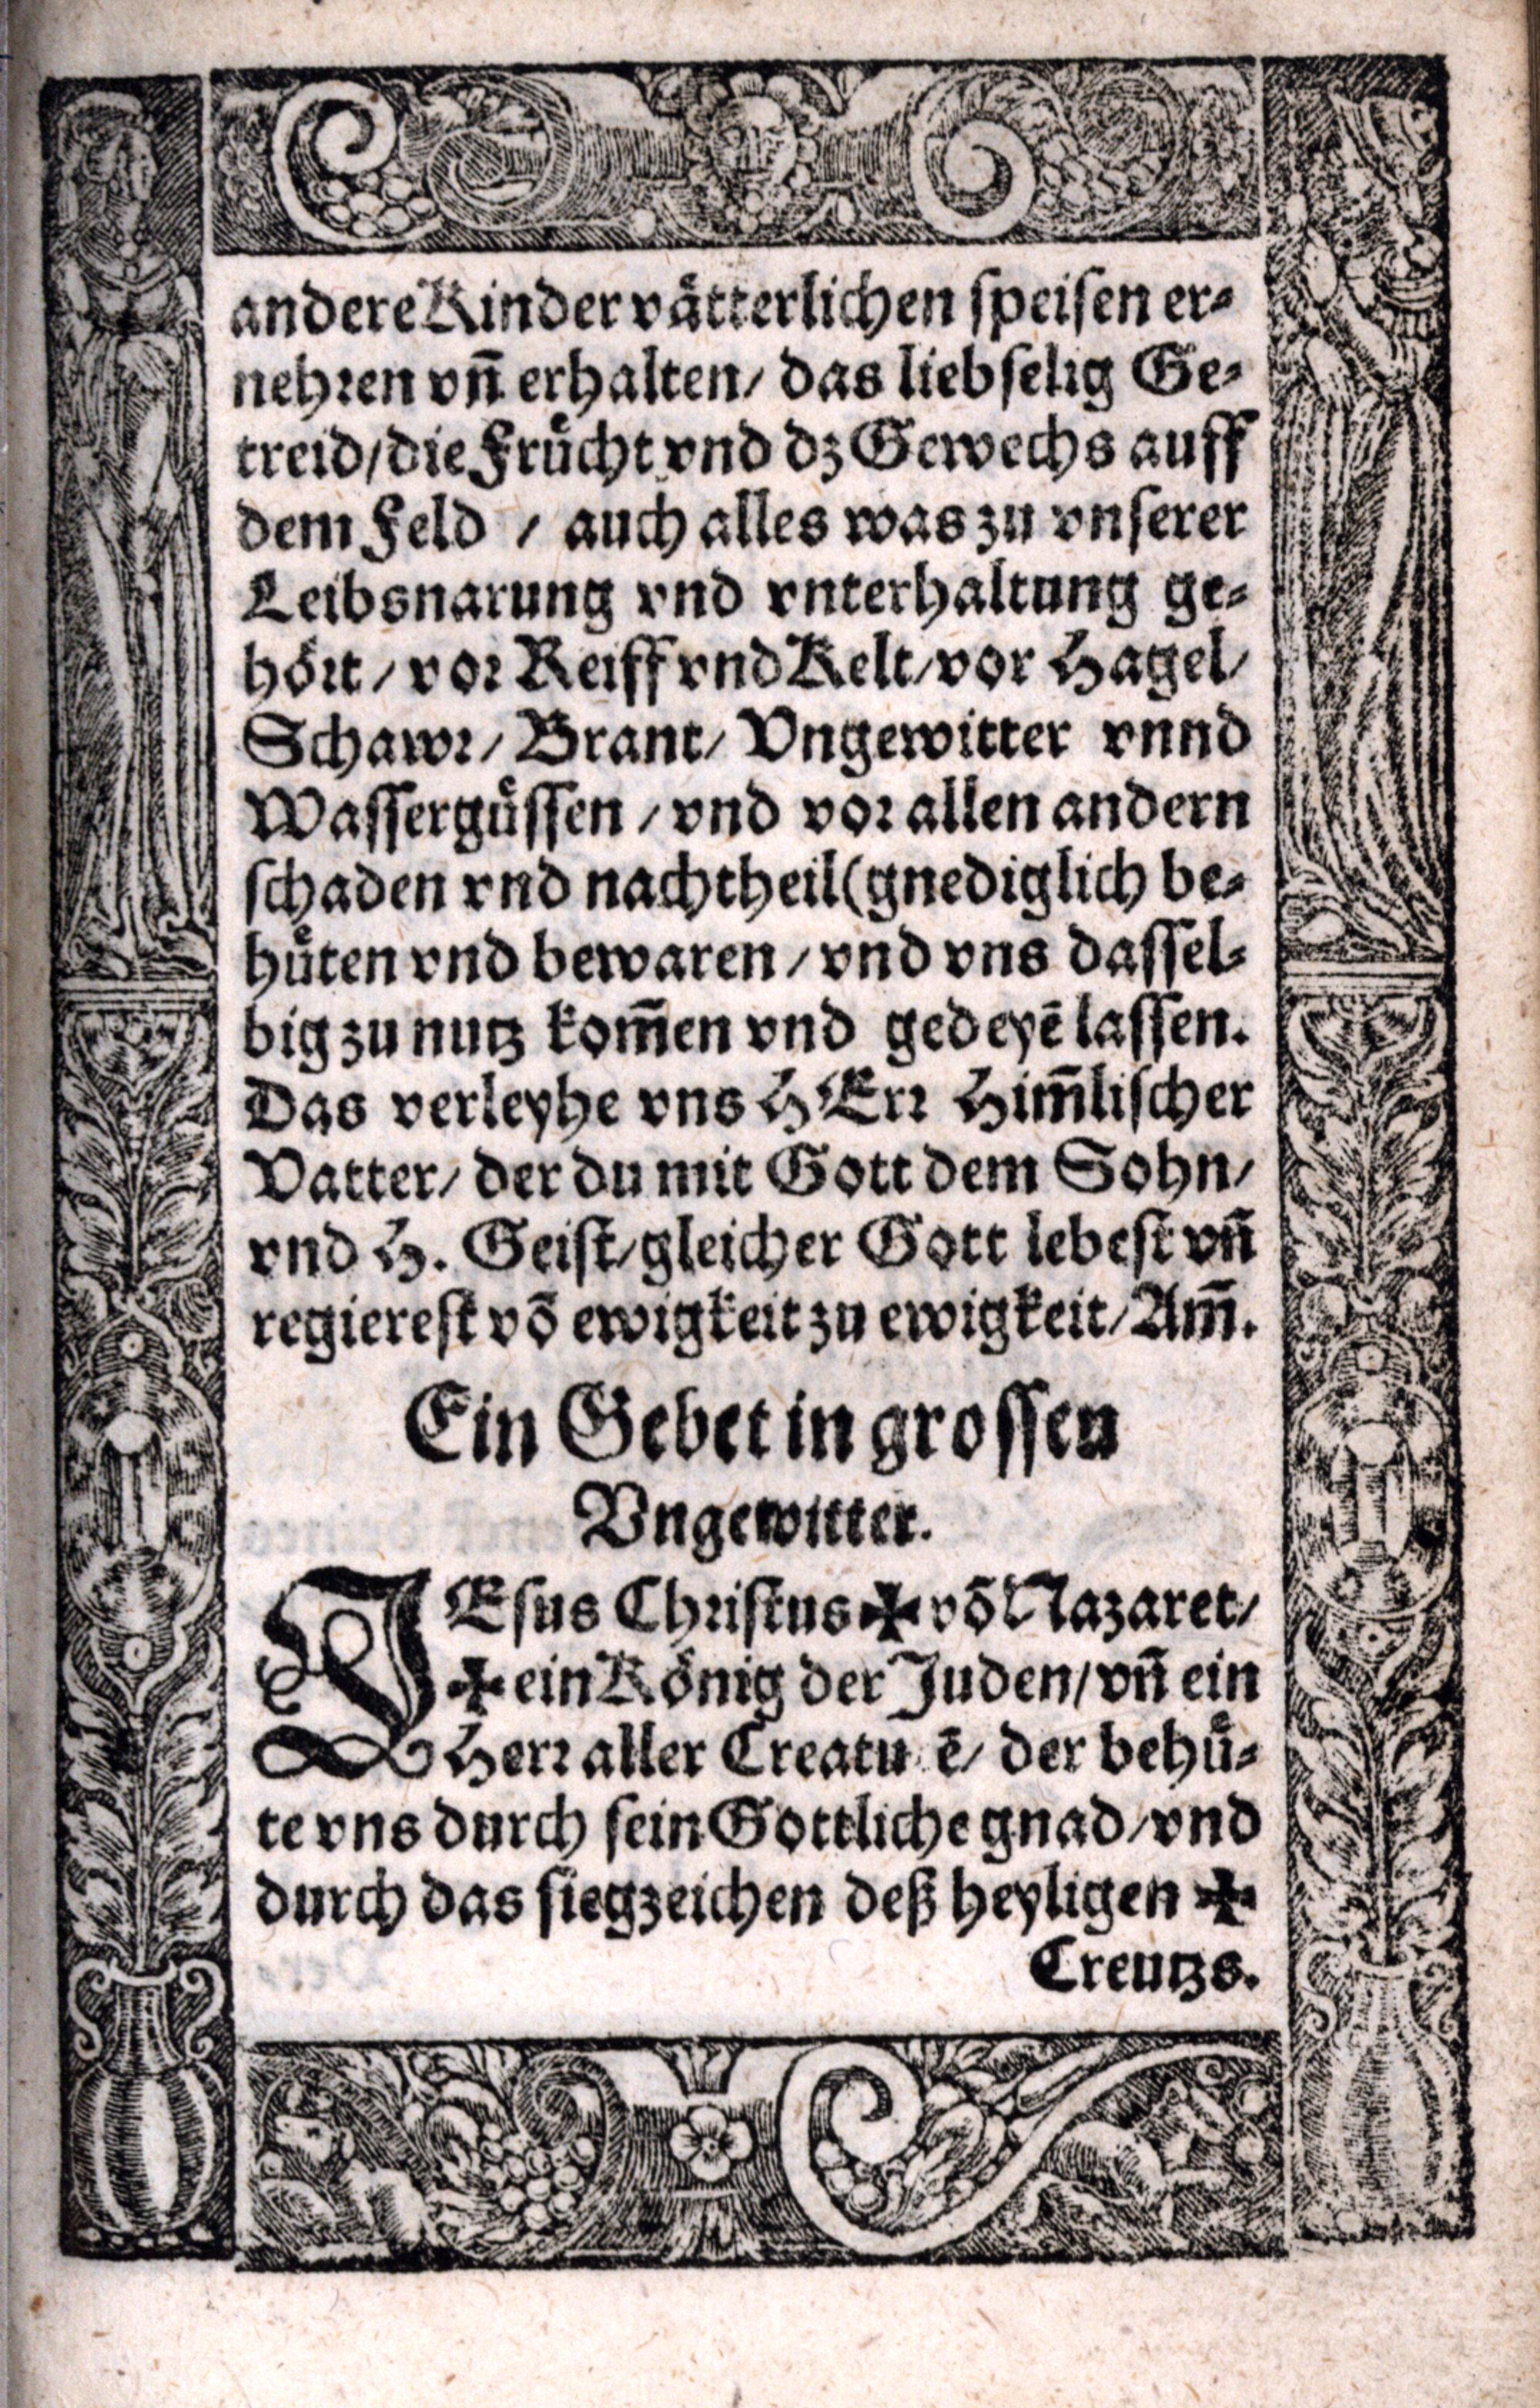 andere Kinder vätterlichen speisen er-
nehren vñ erhalten / das liebselig Ge-
treid / die Frücht vnd dz Gewechs auff
dem Feld / auch alles was zu vnserer
Leibsnarung vnd vnterhaltung ge-
hört / vor Reiff vnd Kelt / vor Hagel /
Schawr / Brant / Vngewitter vnnd
Wassergüssen / vnd vor allen andern
schaden vnd nachtheil (gnediglich be-
hüten vnd bewaren / vnd vns dassel-
big zu nutz kom̃en vnd gedeyẽ lassen.
Das verleyhe vns HErr Him̃lischer
Vatter / der du mit Gott dem Sohn /
vnd H. Geist / gleicher Gott lebest vñ
regierest võ ewigkeit zu ewigkeit / Am̃.
Ein Gebet in grossen
Vngewitter.
JEsus Christus ✠ võ Nazaret /
✠ ein König der Juden / vñ ein
Herr aller Creatu ẽ / der behü-
te vns durch sein Gottliche gnad / vnd
durch das siegzeichen deß heyligen ✠
Creutzs.